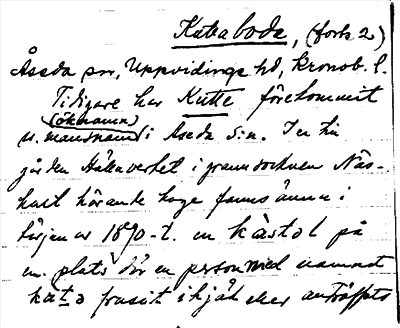 Kuttaboda, (forts 2)
Åseda sn, Uppvidinge hd, Kronob. l.
Tidigare har Kutte förekommit
(öknamn)
ss. mansnamn i Åseda s:n. I en till
gården Hälleverket i grannsocknen Näs-
hult hörande hage fanns ännu i
början av 1890-t. en kåstol på
en plats där en person med namnet
kuta frusit ihjäl eller anträffats